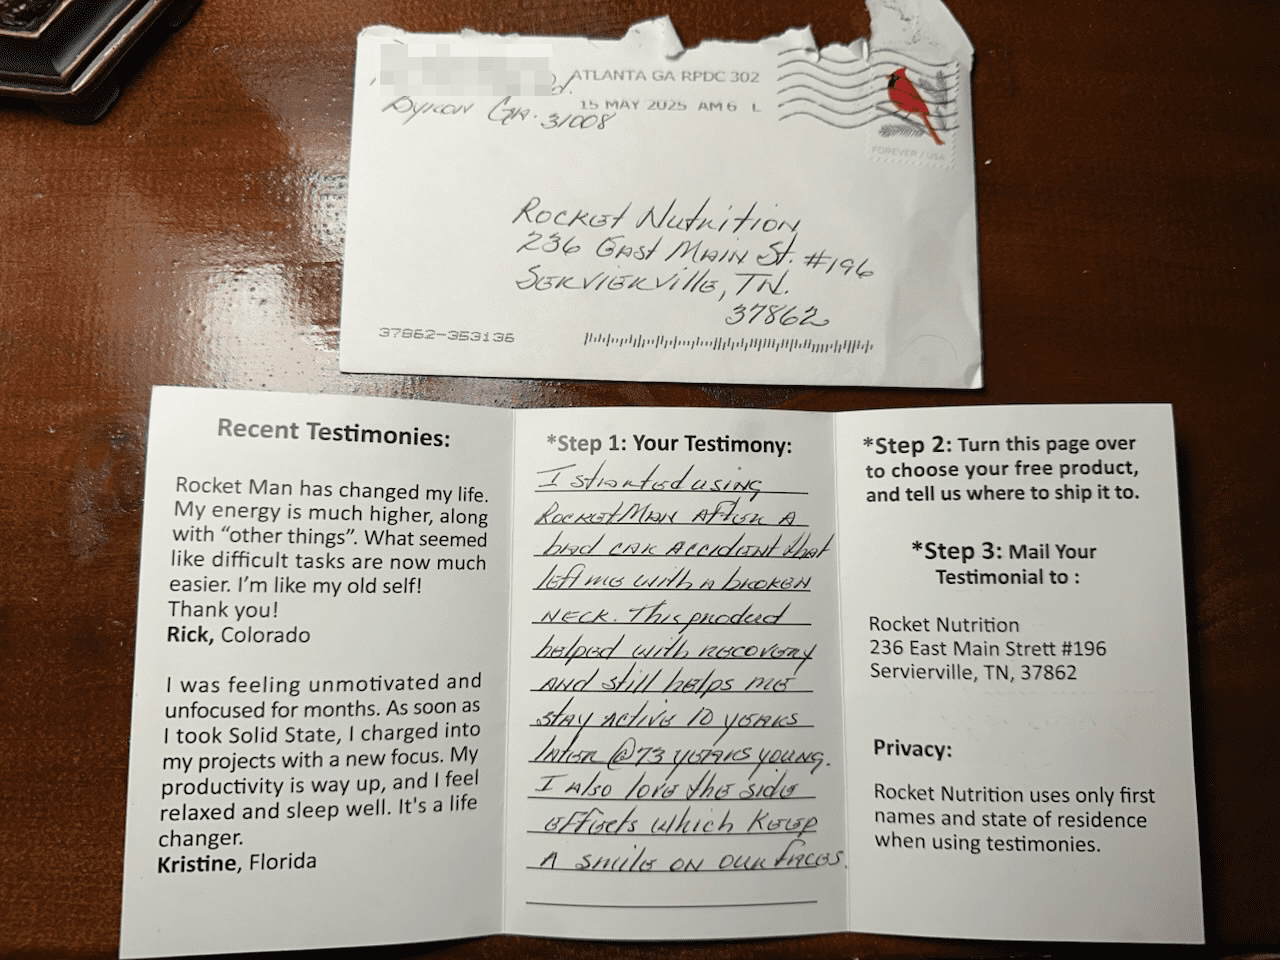 ATLANTA GA RPDC 302
15 MAY 2025 AM 6 L
Byron GA. 31008
FOREVER / USA
Rocket Nutrition
236 East Main St. #196
Servierville, TN.
37862
37862-353136
Recent Testimonies:
Rocket Man has changed my life.
My energy is much higher, along
with “other things”. What seemed
like difficult tasks are now much
easier. I’m like my old self!
Thank you!
Rick, Colorado
I was feeling unmotivated and
unfocused for months. As soon as
I took Solid State, I charged into
my projects with a new focus. My
productivity is way up, and I feel
relaxed and sleep well. It's a life
changer.
Kristine, Florida
*Step 1: Your Testimony:
I started using
RocketMan after a
bad car accident that
left me with a broken
neck. This product
helped with recovery
and still helps me
stay active 10 years
later @73 years young.
I also love the side
effects which keep
a smile on our faces.
*Step 2: Turn this page over
to choose your free product,
and tell us where to ship it to.
*Step 3: Mail Your
Testimonial to :
Rocket Nutrition
236 East Main Strett #196
Servierville, TN, 37862
Privacy:
Rocket Nutrition uses only first
names and state of residence
when using testimonies.